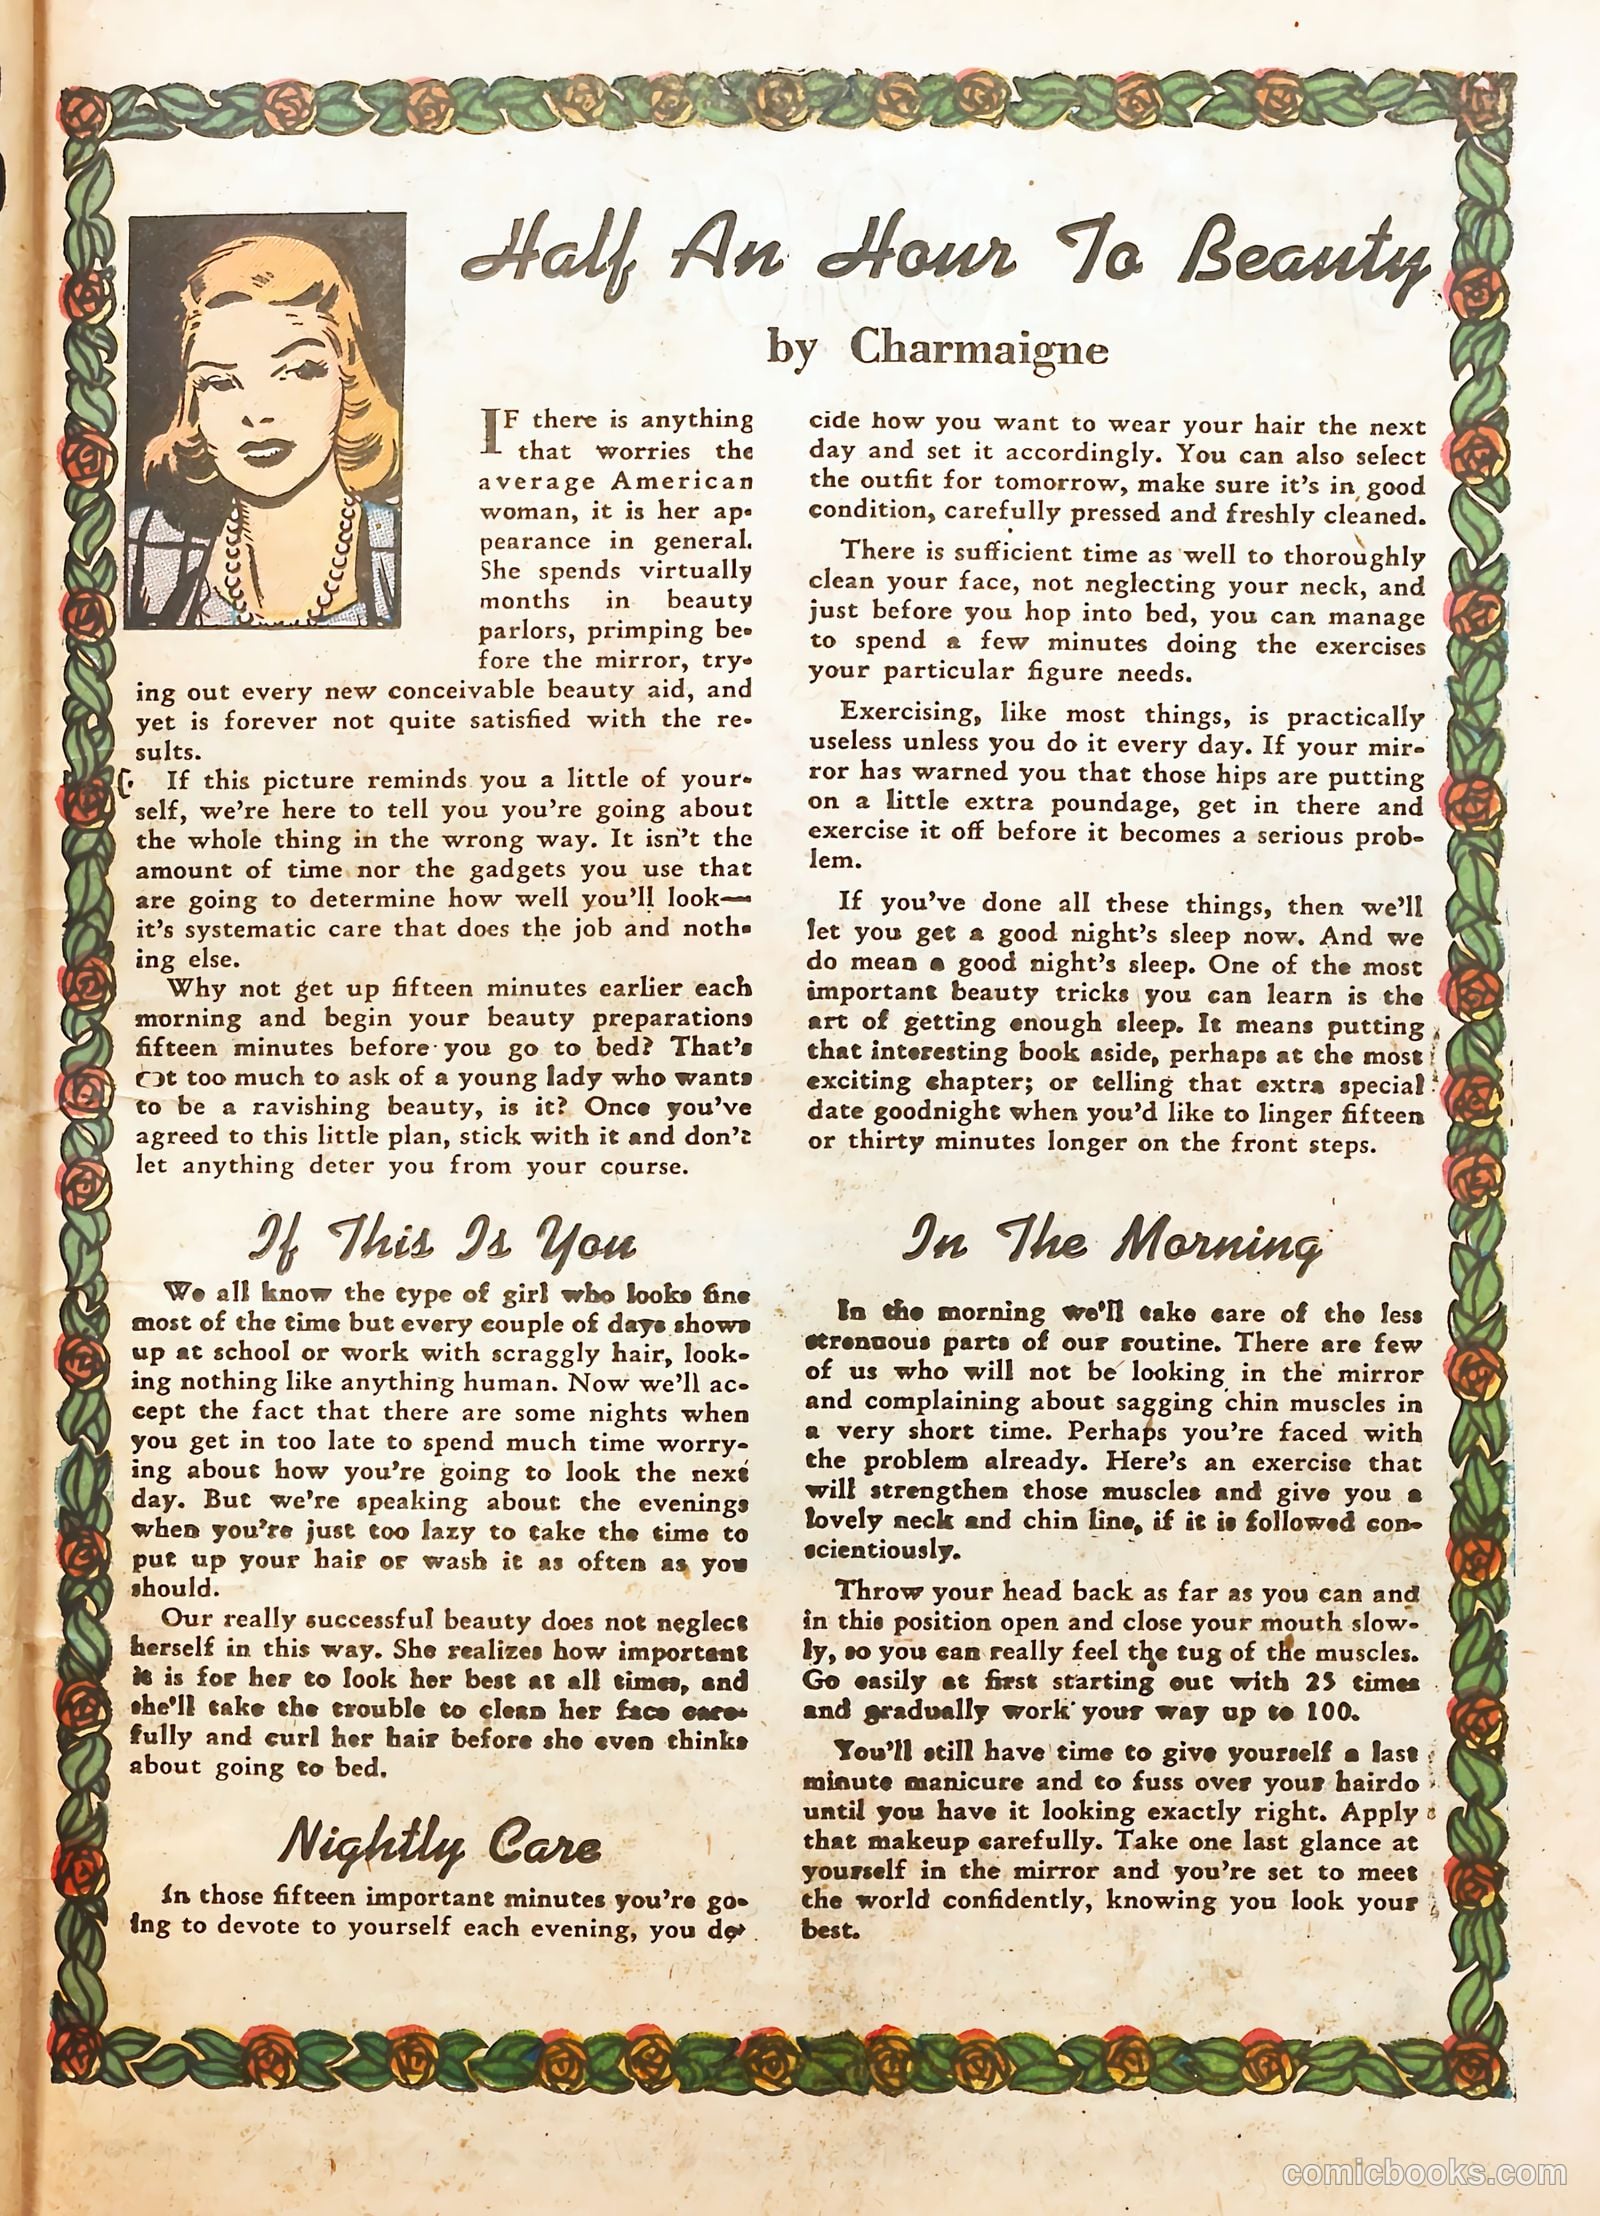 Half An Hour To Beauty
by Charmaigne
IF there is anything
that worries the
average American
woman, it is her ap-
pearance in general.
She spends virtually
months in beauty
parlors, primping be-
fore the mirror, try-
ing out every new conceivable beauty aid, and
yet is forever not quite satisfied with the re-
sults.
If this picture reminds you a little of your-
self, we're here to tell you you're going about
the whole thing in the wrong way. It isn't the
amount of time nor the gadgets you use that
are going to determine how well you'll look—
it's systematic care that does the job and noth-
ing else.
Why not get up fifteen minutes earlier each
morning and begin your beauty preparations
fifteen minutes before you go to bed? That's
too much to ask of a young lady who wants
to be a ravishing beauty, is it? Once you've
agreed to this little plan, stick with it and don't
let anything deter you from your course.
If This Is You
We all know the type of girl who looks fine
most of the time but every couple of days shows
up at school or work with scraggly hair, look-
ing nothing like anything human. Now we'll ac-
cept the fact that there are some nights when
you get in too late to spend much time worry-
ing about how you're going to look the next
day. But we're speaking about the evenings
when you're just too lazy to take the time to
put up your hair or wash it as often as you
should.
Our really successful beauty does not neglect
herself in this way. She realizes how important
it is for her to look her best at all times, and
she'll take the trouble to clean her face care-
fully and curl her hair before she even thinks
about going to bed.
Nightly Care
In those fifteen important minutes you're go-
ing to devote to yourself each evening, you de-
cide how you want to wear your hair the next
day and set it accordingly. You can also select
the outfit for tomorrow, make sure it's in good
condition, carefully pressed and freshly cleaned.
There is sufficient time as well to thoroughly
clean your face, not neglecting your neck, and
just before you hop into bed, you can manage
to spend a few minutes doing the exercises
your particular figure needs.
Exercising, like most things, is practically
useless unless you do it every day. If your mir-
ror has warned you that those hips are putting
on a little extra poundage, get in there and
exercise it off before it becomes a serious prob-
lem.
If you've done all these things, then we'll
let you get a good night's sleep now. And we
do mean a good night's sleep. One of the most
important beauty tricks you can learn is the
art of getting enough sleep. It means putting
that interesting book aside, perhaps at the most
exciting chapter; or telling that extra special
date goodnight when you'd like to linger fifteen
or thirty minutes longer on the front steps.
In The Morning
In the morning we'll take care of the less
strenuous parts of our routine. There are few
of us who will not be looking in the mirror
and complaining about sagging chin muscles in
a very short time. Perhaps you're faced with
the problem already. Here's an exercise that
will strengthen those muscles and give you a
lovely neck and chin line, if it is followed con-
scientiously.
Throw your head back as far as you can and
in this position open and close your mouth slow-
ly, so you can really feel the tug of the muscles.
Go easily at first starting out with 25 times
and gradually work your way up to 100.
You'll still have time to give yourself a last
minute manicure and to fuss over your hairdo
until you have it looking exactly right. Apply
that makeup carefully. Take one last glance at
yourself in the mirror and you're set to meet
the world confidently, knowing you look your
best.
comicbooks.com